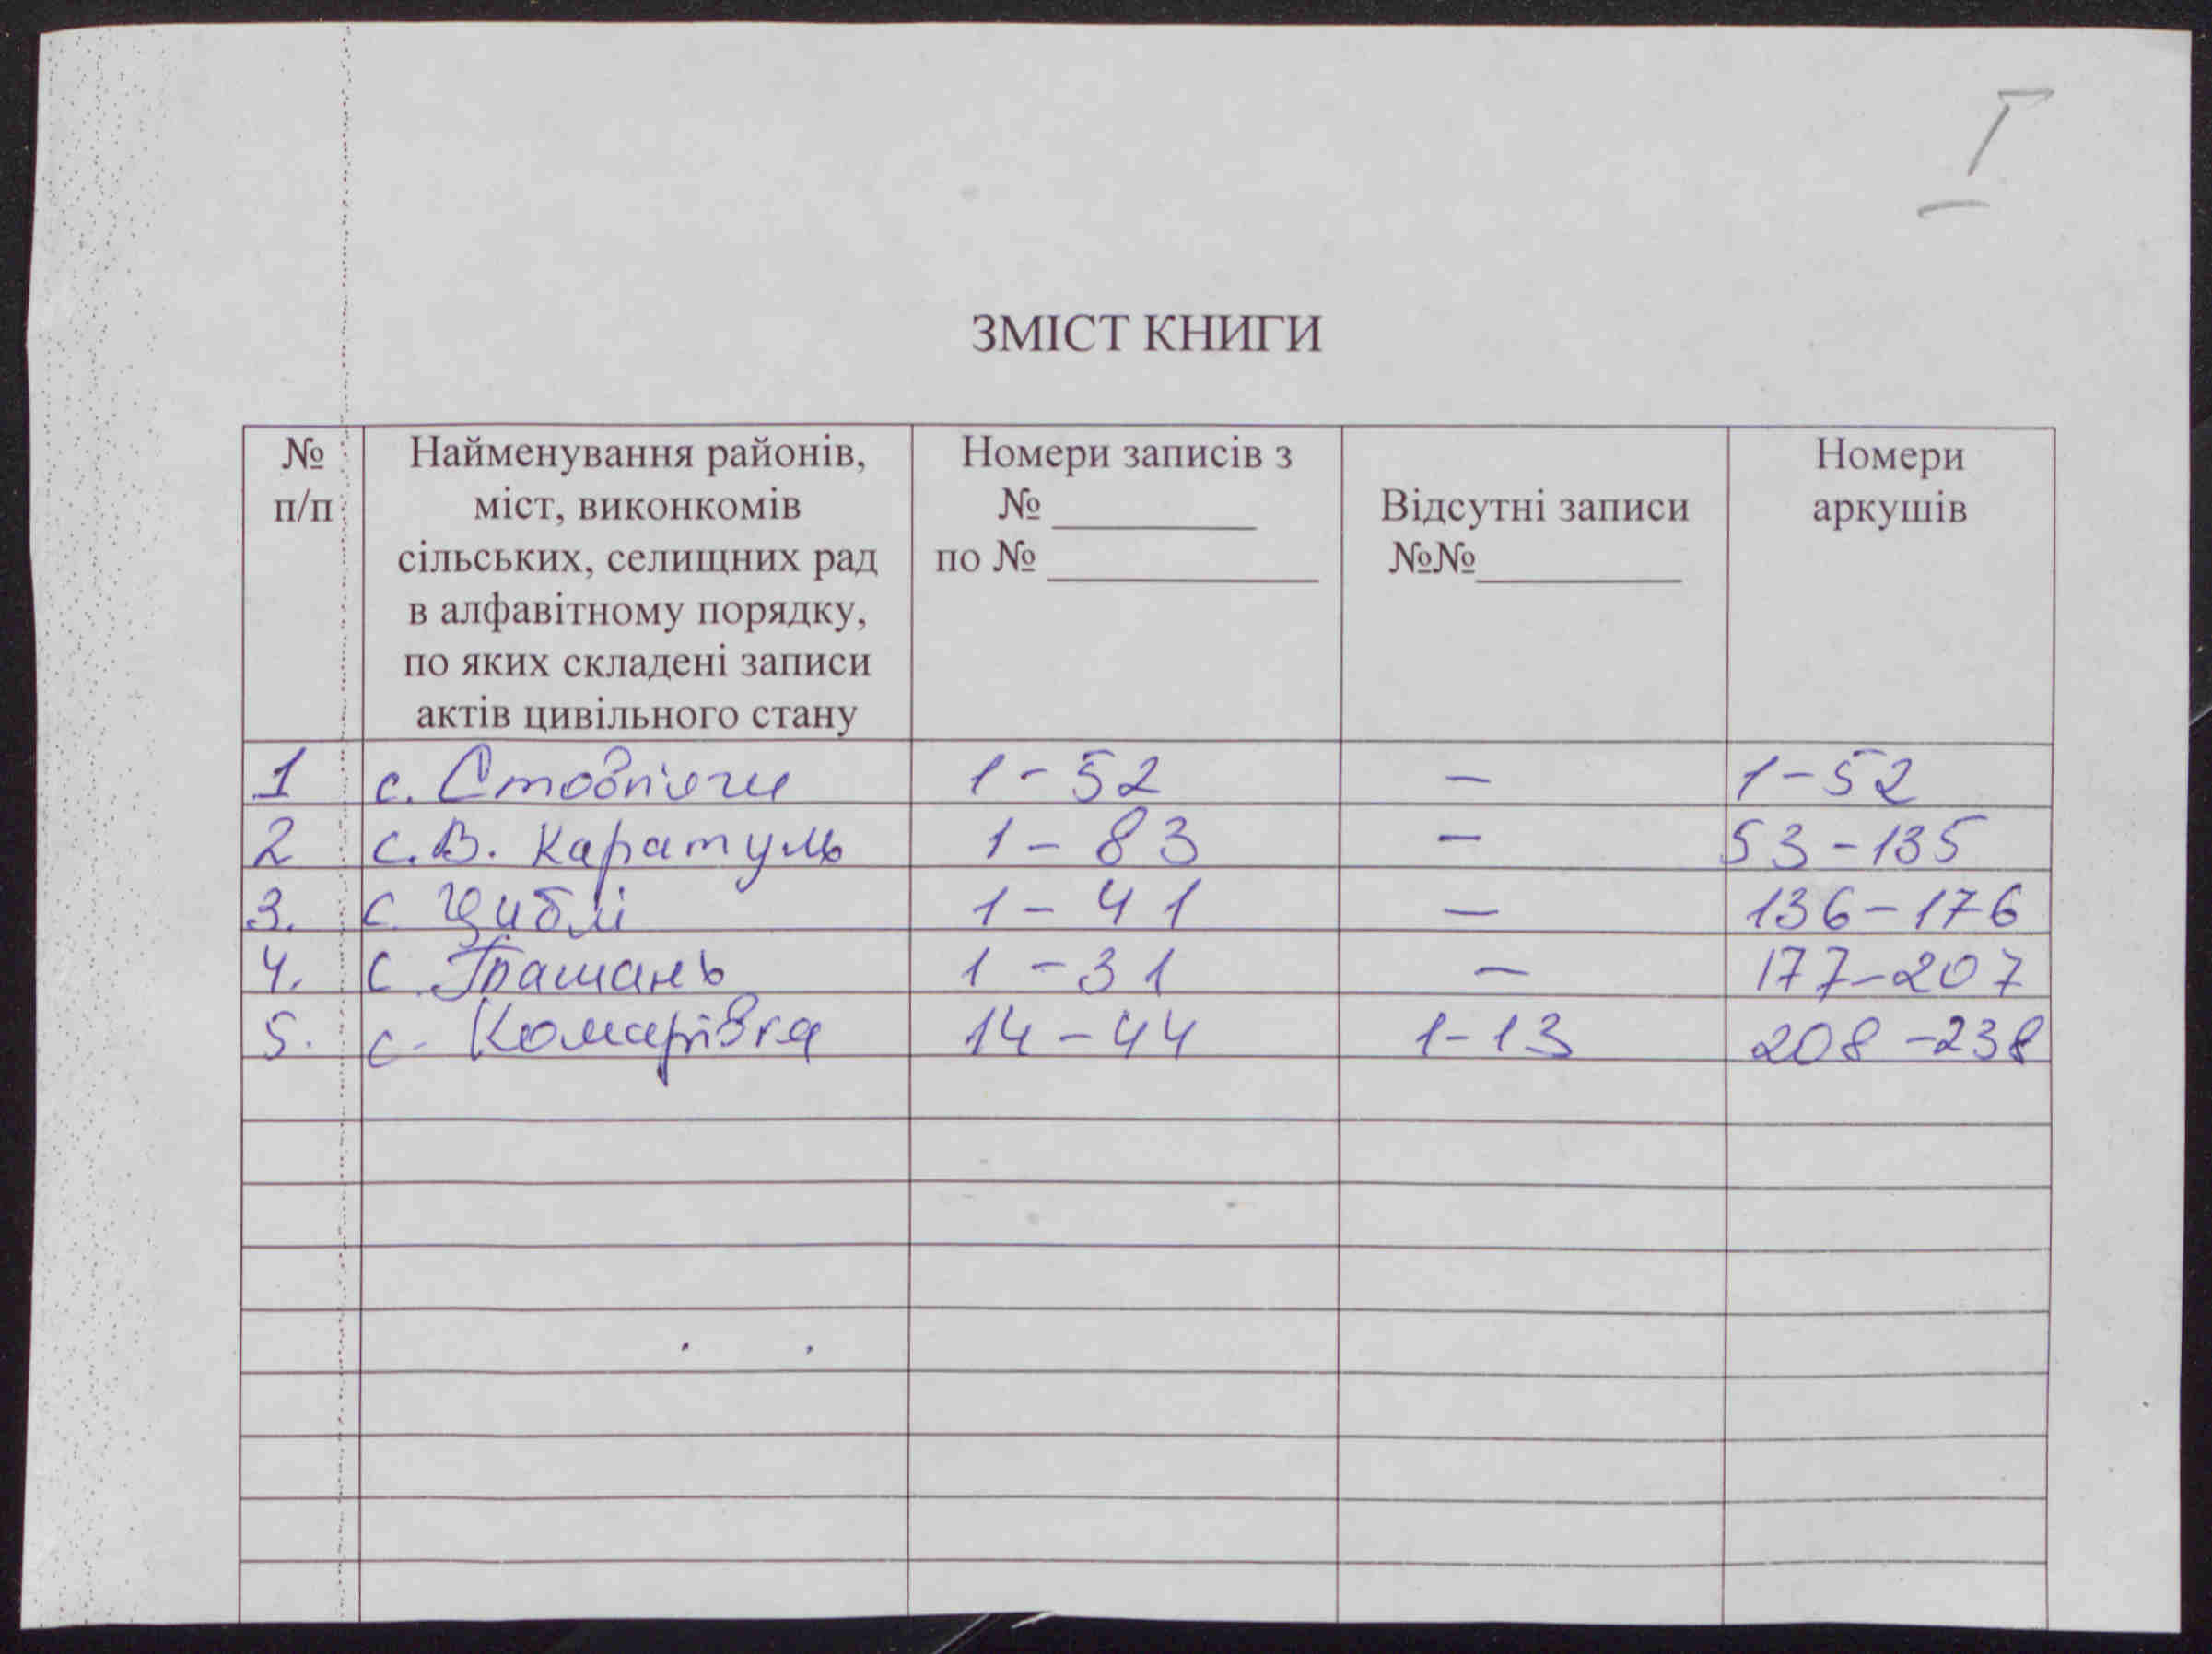 I
ЗМІСТ КНИГИ
№ п/п
Найменування районів, міст, виконкомів сільських, селищних рад в алфавітному порядку, по яких складені записи актів цивільного стану
Номери записів з № ___ по № ___
Відсутні записи №№___
Номери аркушів
1 с. Стовп'яги 1-52 — 1-52
2 с. В. Каратуль 1-83 — 53-135
3. с Циблі 1-41 — 136-176
4. с. Гланишів 1-31 — 177-207
5. с. Комарівка 14-44 1-13 208-238